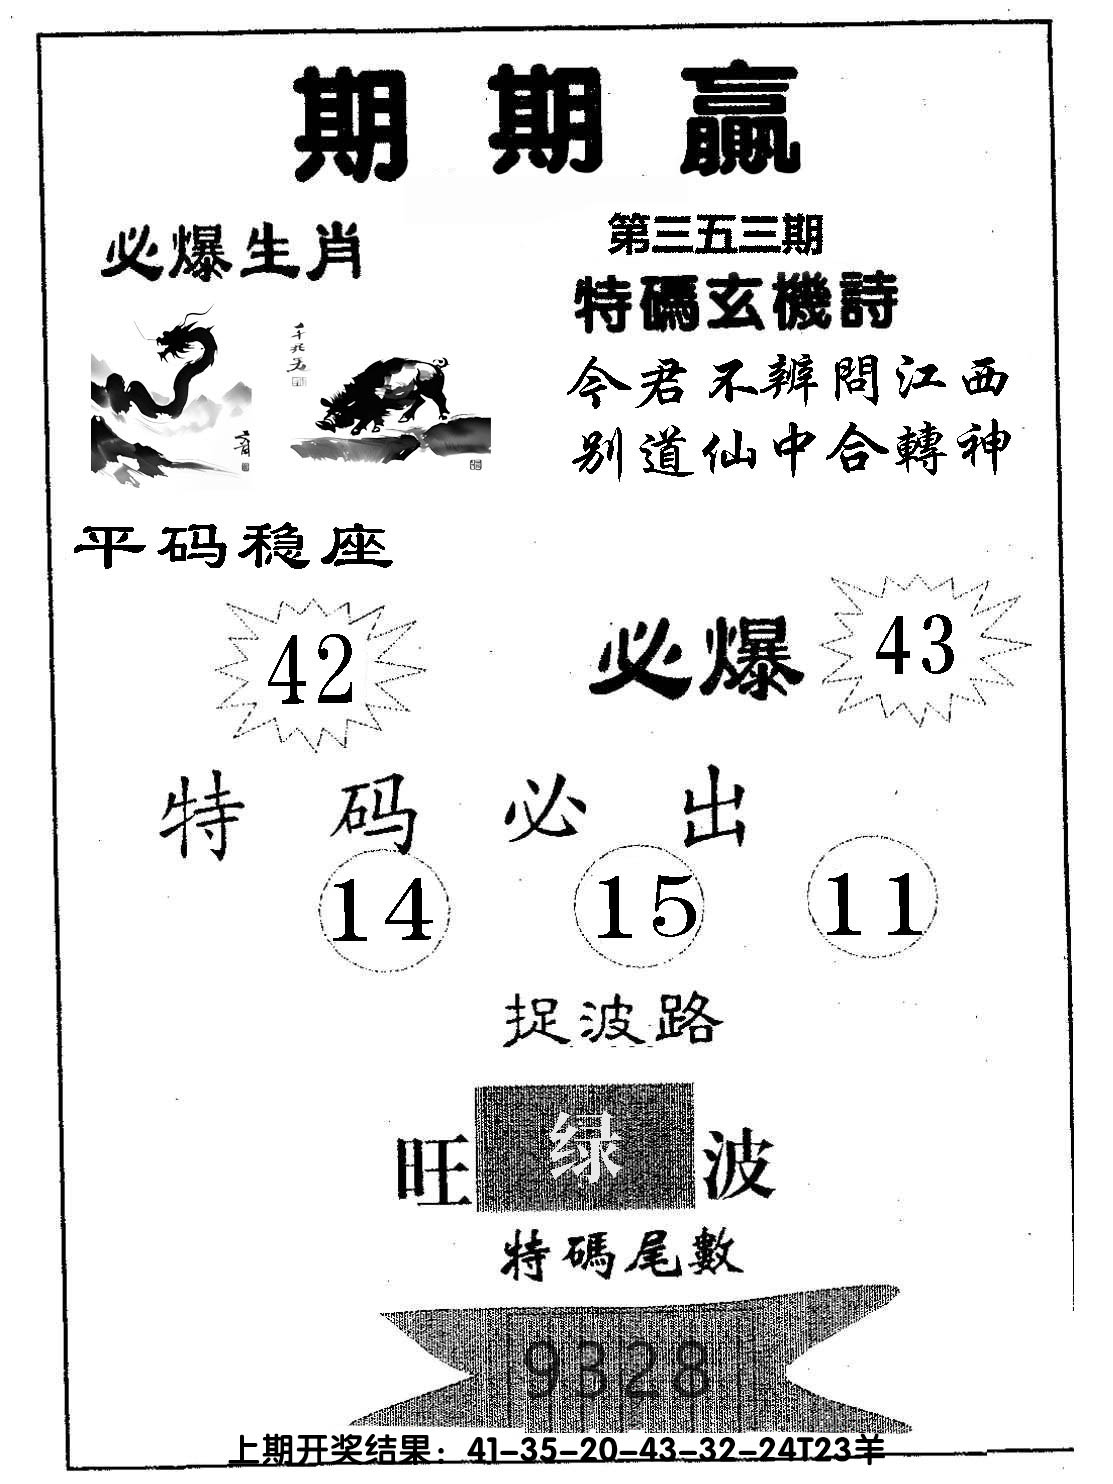 期期赢
必爆生肖
第三五三期
特碼玄機詩
今君不辨問江西
别道仙中合轉神
平码稳座
42
必爆
43
特码必出
14 15 11
捉波路
旺绿波
特碼尾數
9328
上期开奖结果：41-35-20-43-32-24T23羊